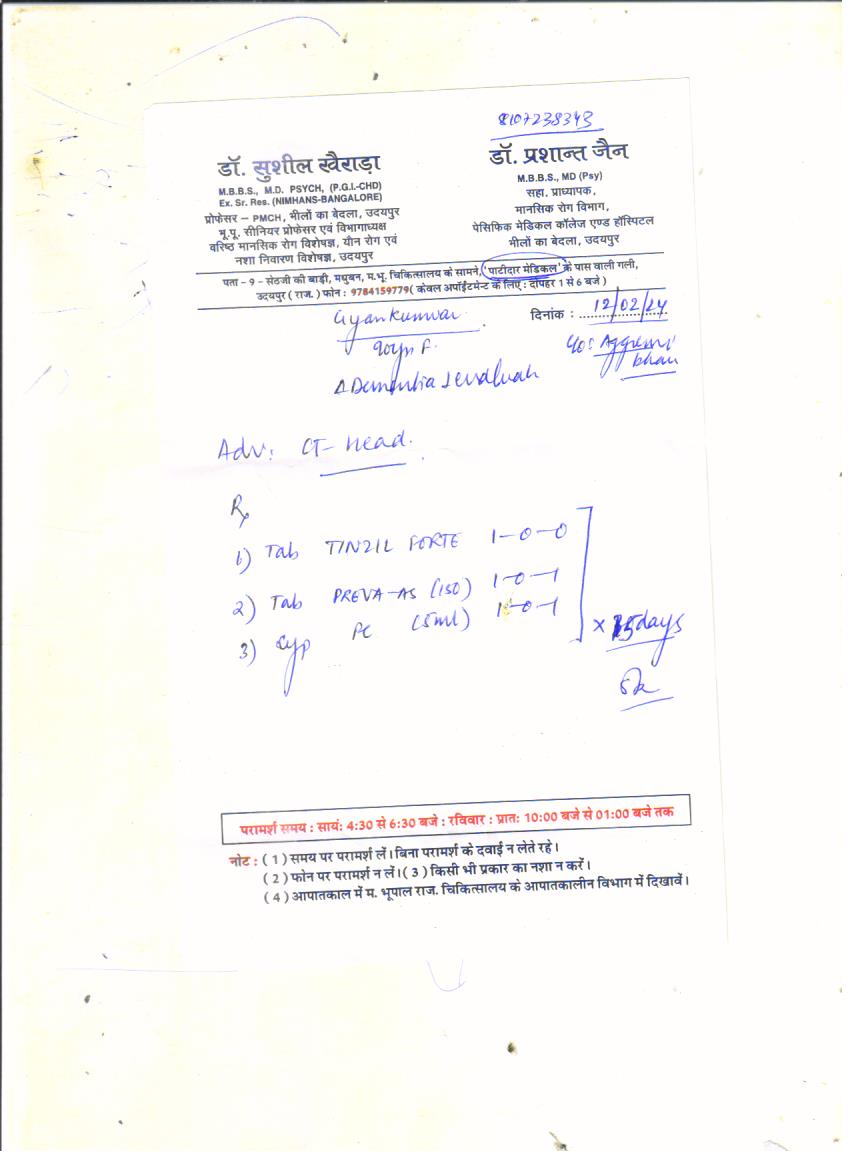 8107238343
डॉ. सुशील खैराड़ा
M.B.B.S., M.D. PSYCH, (P.G.I.-CHD)
Ex. Sr. Res. (NIMHANS-BANGALORE)
प्रोफेसर – PMCH, भीलों का बेदला, उदयपुर
भू.पू. सीनियर प्रोफेसर एवं विभागाध्यक्ष
वरिष्ठ मानसिक रोग विशेषज्ञ, यौन रोग एवं
नशा निवारण विशेषज्ञ, उदयपुर
डॉ. प्रशान्त जैन
M.B.B.S., MD (Psy)
सहा. प्राध्यापक,
मानसिक रोग विभाग,
पेसिफिक मेडिकल कॉलेज एण्ड हॉस्पिटल
भीलों का बेदला, उदयपुर
पता – 9 – सेठजी की बाड़ी, मधुबन, म.भू. चिकित्सालय के सामने, 'पाटीदार मेडिकल' के पास वाली गली,
उदयपुर ( राज. ) फोन : 9784159779 ( केवल अपॉईंटमेन्ट के लिए : दोपहर 1 से 6 बजे )
Gyankunwar
दिनांक : 12/02/24
90yrs F.
Δ Dementia
Adv: CT- Head.
Rx
1) Tab TINZIL FORTE 1-0-0
2) Tab PREVA-AS (150) 1-0-1
3) Syp PC (5ml) 1-0-1
x 15 days
परामर्श समय : सायं: 4:30 से 6:30 बजे : रविवार : प्रात: 10:00 बजे से 01:00 बजे तक
नोट : ( 1 ) समय पर परामर्श लें। बिना परामर्श के दवाई न लेते रहे।
( 2 ) फोन पर परामर्श न लें। ( 3 ) किसी भी प्रकार का नशा न करें।
( 4 ) आपातकाल में म. भूपाल राज. चिकित्सालय के आपातकालीन विभाग में दिखावें।